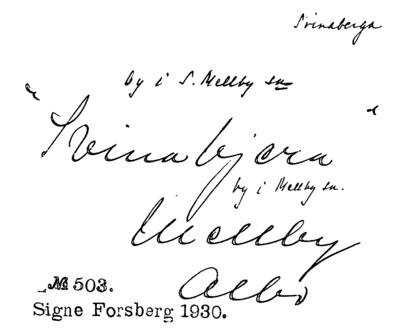 Svinaberga
by i S. Mellby sn
"Svinabjera"
by i Mellby sn.
Mellby
Albo
№ 503.
Signe Forsberg 1930.